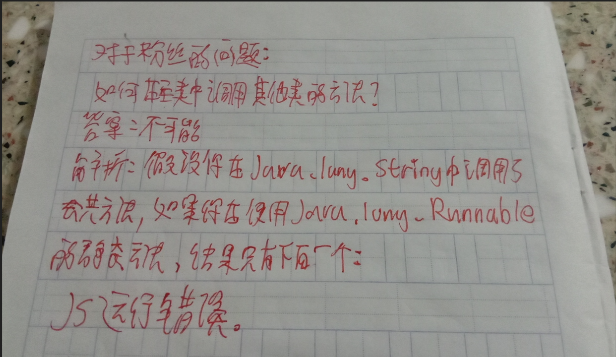 对于粉丝的问题:
如何在类中调用其他类的方法?
答案:不可能
解析:假设你在Java.lang.String中调用了
公共方法,如果你在使用Java.lang.Runnable
的静态方法,结果只有下面一个:
JS运行错误。